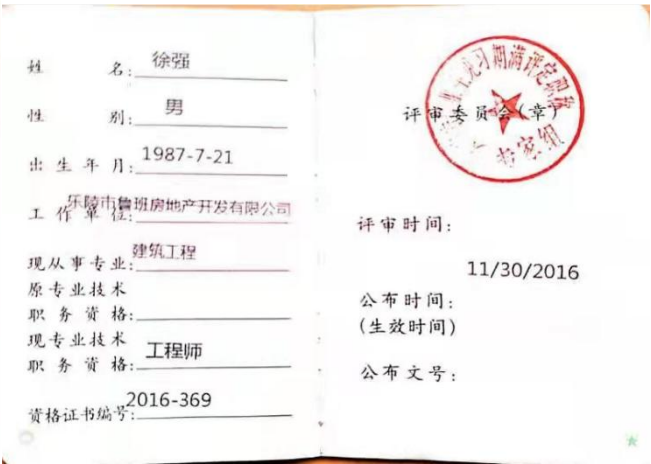 姓名: 徐强
性别: 男
出生年月: 1987-7-21
工作单位: 乐陵市鲁班房地产开发有限公司
现从事专业: 建筑工程
原专业技术
职务资格:
现专业技术
职务资格: 工程师
资格证书编号: 2016-369
见习期满评定职称
专家组
评审委员会(章)
评审时间:
11/30/2016
公布时间:
(生效时间)
公布文号: